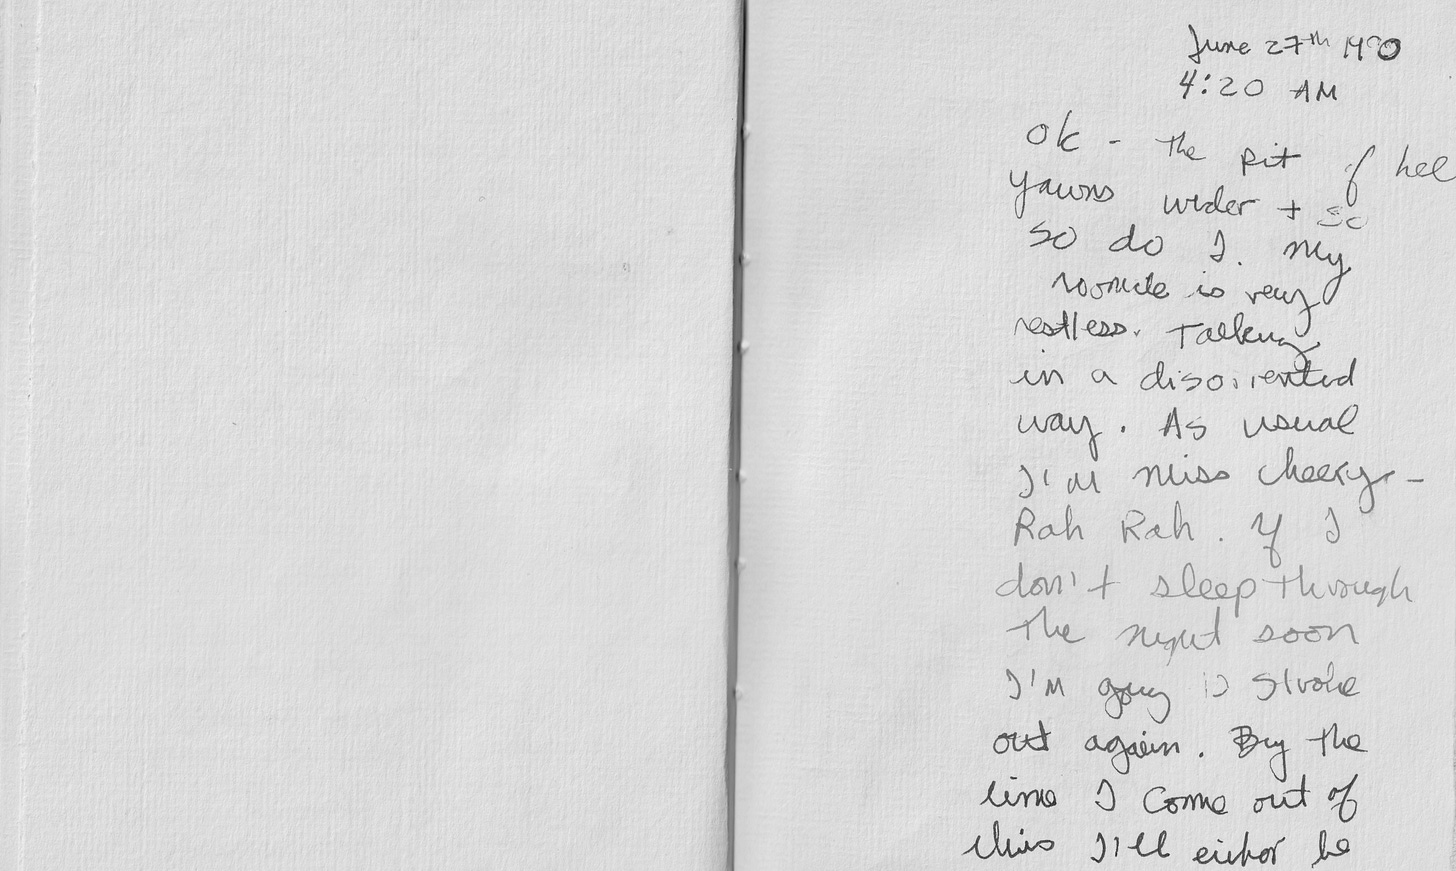 June 27th 1990
4:20 AM
Ok - The pit of hell
yawns wider + so
so do I. My
roomate is very
restless. Talking
in a disoriented
way. As usual
I'm Miss Cheery -
Rah Rah. If I
don't sleep through
the night soon
I'm going to stroke
out again. By the
time I come out of
this I'll either be